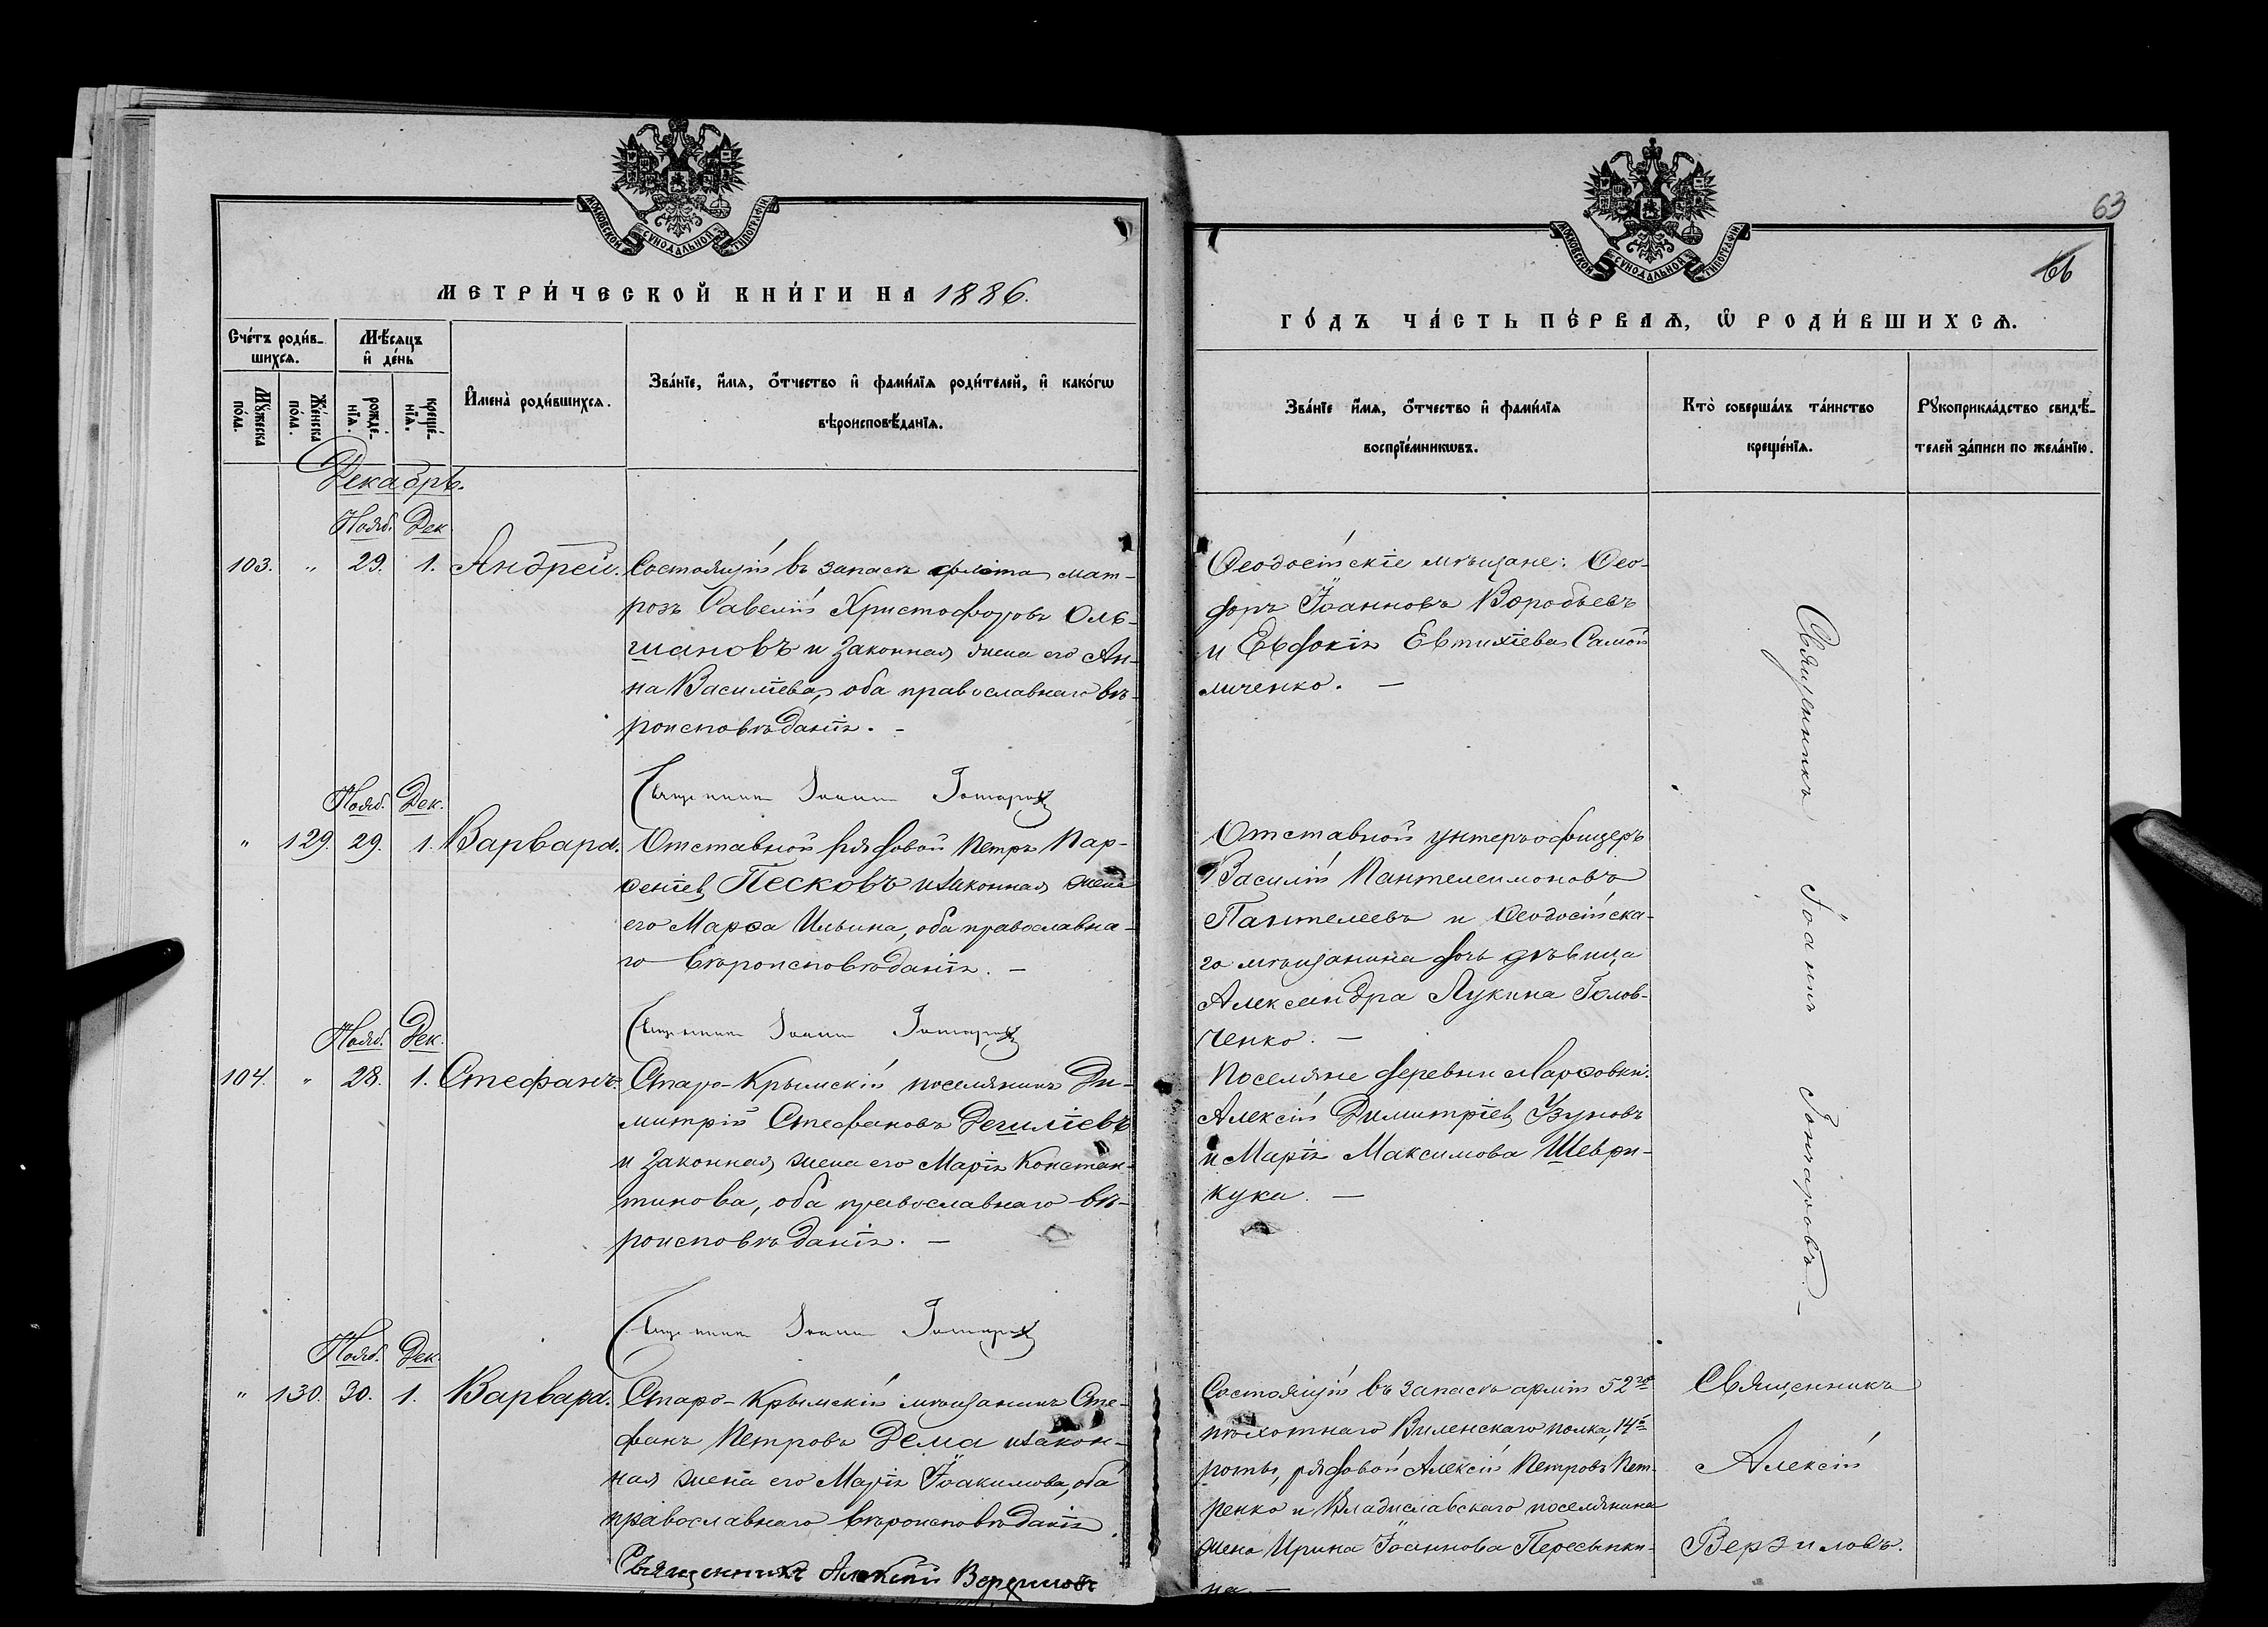 МОСКОВСКОЙ СУНОДАЛЬНОЙ ТИПОГРАФІИ
МЕТРИ́ЧЕСКОЙ КНИ́ГИ НА 1886.
Сче́тъ роди́в-
шихсѧ.
Мѣ́сяцъ
и҆ де́нь
Мꙋ́жеска
по́ла.
Же́нска
по́ла.
рожде́-
нїѧ.
креще́-
нїѧ.
И҆мена̀ роди́вшихсѧ.
Зва́нїе, и҆́мѧ, ѻ҆́тчество и҆ фами́лїѧ роди́телей, и҆ како́гѡ
вѣроисповѣ́данїѧ.
Декабрь.
Нояб. Дек.
103. " 29. 1. Андрей. Состоящій въ запасѣ флота мат-
розъ Савелій Христофоровъ Оль-
шановъ и законная жена его Ан-
на Василіева, оба православнаго вѣ-
роисповѣданія. -
Священникъ Іоаннъ Гончаровъ
Нояб. Дек.
" 129. 29. 1. Варвара. Отставной рядовой Петръ Пар-
ѳеніевъ Песковъ и законная жена
его Марѳа Ильина, оба православна-
го вѣроисповѣданія. -
Священникъ Іоаннъ Гончаровъ
Нояб. Дек.
104. " 28. 1. Стефанъ. Старо-Крымскій поселянинъ Ди-
митрій Стефановъ Дешліевъ
и законная жена его Марія Констан-
тинова, оба православнаго вѣ-
роисповѣданія. -
Священникъ Іоаннъ Гончаровъ
Нояб. Дек.
" 130. 30. 1. Варвара. Старо-Крымскій мѣщанинъ Сте-
фанъ Петровъ Дема и закон-
ная жена его Марія Іоакимова, оба
православнаго вѣроисповѣданія.
Священникъ Алексій Верзиловъ
МОСКОВСКОЙ СУНОДАЛЬНОЙ ТИПОГРАФІИ
63
66
ГО́ДЪ ЧА́СТЬ ПЕ́РВАѦ, Ѡ҆ РОДИ́ВШИХСѦ.
Зва́нїе и҆́мѧ, ѻ҆́тчество и҆ фами́лїѧ
воспрїе́мникѡвъ.
Кто̀ соверша́лъ та́инство
креще́нїѧ.
Рꙋкоприкла́дство свидѣ́-
телей за́писи по жела́нїю.
Ѳеодосійскіе мѣщане: Ѳео-
доръ Іоанновъ Воробьевъ
и Евдокія Евтихіева Самой-
личенко. -
Отставной унтеръ офицеръ
Василій Пантелеимоновъ
Пантелеевъ и Ѳеодосійска-
го мѣщанина дочь дѣвица
Александра Лукина Голов-
ченко. -
Поселяне деревни Марѳовки:
Алексій Димитріевъ Узуновъ
и Марія Максимова Шеври-
кука. -
Священникъ Іоаннъ Гончаровъ. -
Состоящій въ запасѣ арміи 52го
пѣхотнаго Виленскаго полка, 14й
роты, рядовой Алексій Петровъ Пет-
ренко и Владиславскаго поселянина
жена Ирина Іоаннова Пересыпки-
на. -
Священникъ
Алексій
Верзиловъ.